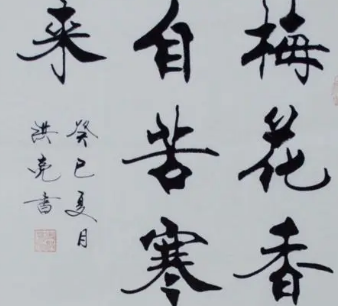 梅花香
自苦寒
来
癸巳夏月
洪亮書